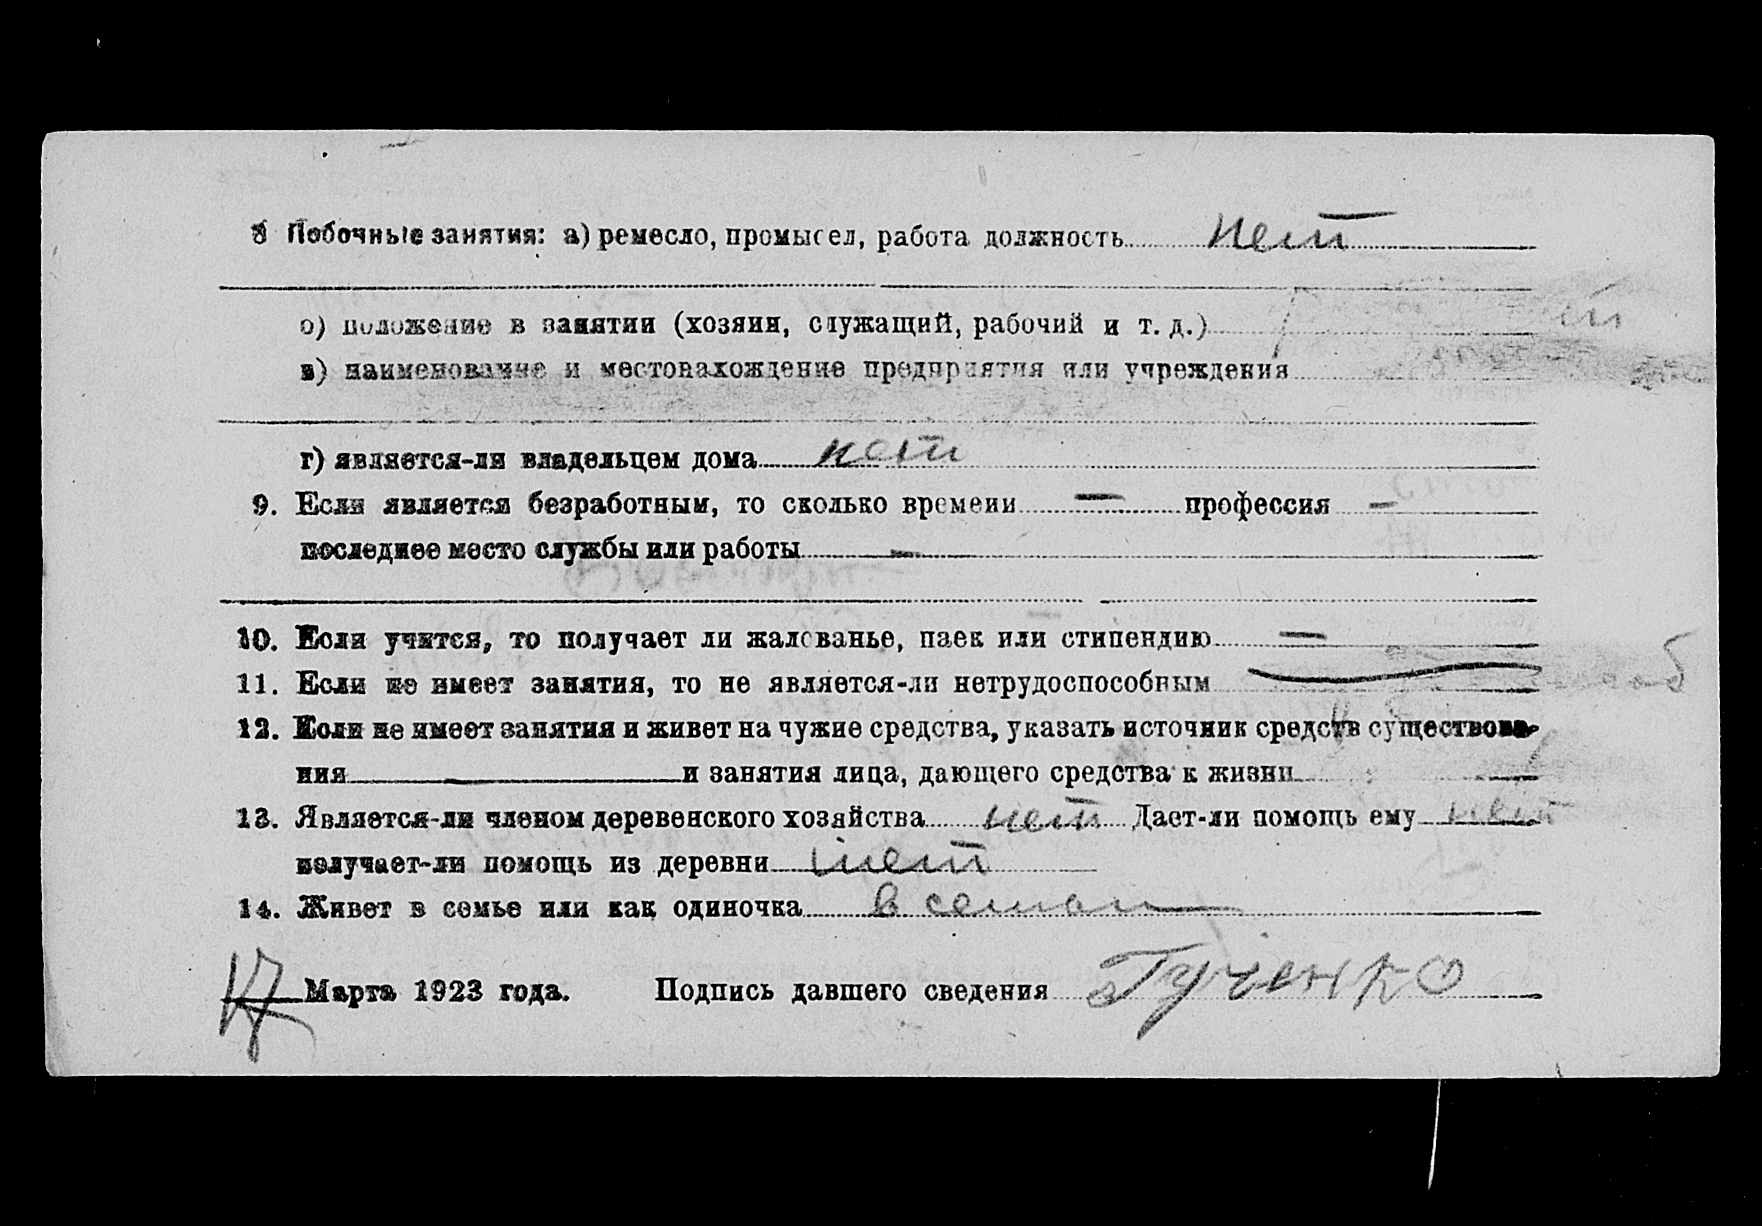 8 Побочные занятия: а) ремесло, промысел, работа должность нет
б) положение в занятии (хозяин, служащий, рабочий и т. д.)
в) наименование и местонахождение предприятия или учреждения
г) является-ли владельцем дома нет
9. Если является безработным, то сколько времени — профессия —
последнее место службы или работы —
10. Если учится, то получает ли жалованье, паек или стипендию —
11. Если не имеет занятия, то не является-ли нетрудоспособным —
12. Если не имеет занятия и живет на чужие средства, указать источник средств существова-
ния — и занятия лица, дающего средства к жизни —
13. Является-ли членом деревенского хозяйства нет Дает-ли помощь ему нет
получает-ли помощь из деревни нет
14. Живет в семье или как одиночка в семьи
17 Марта 1923 года. Подпись давшего сведения